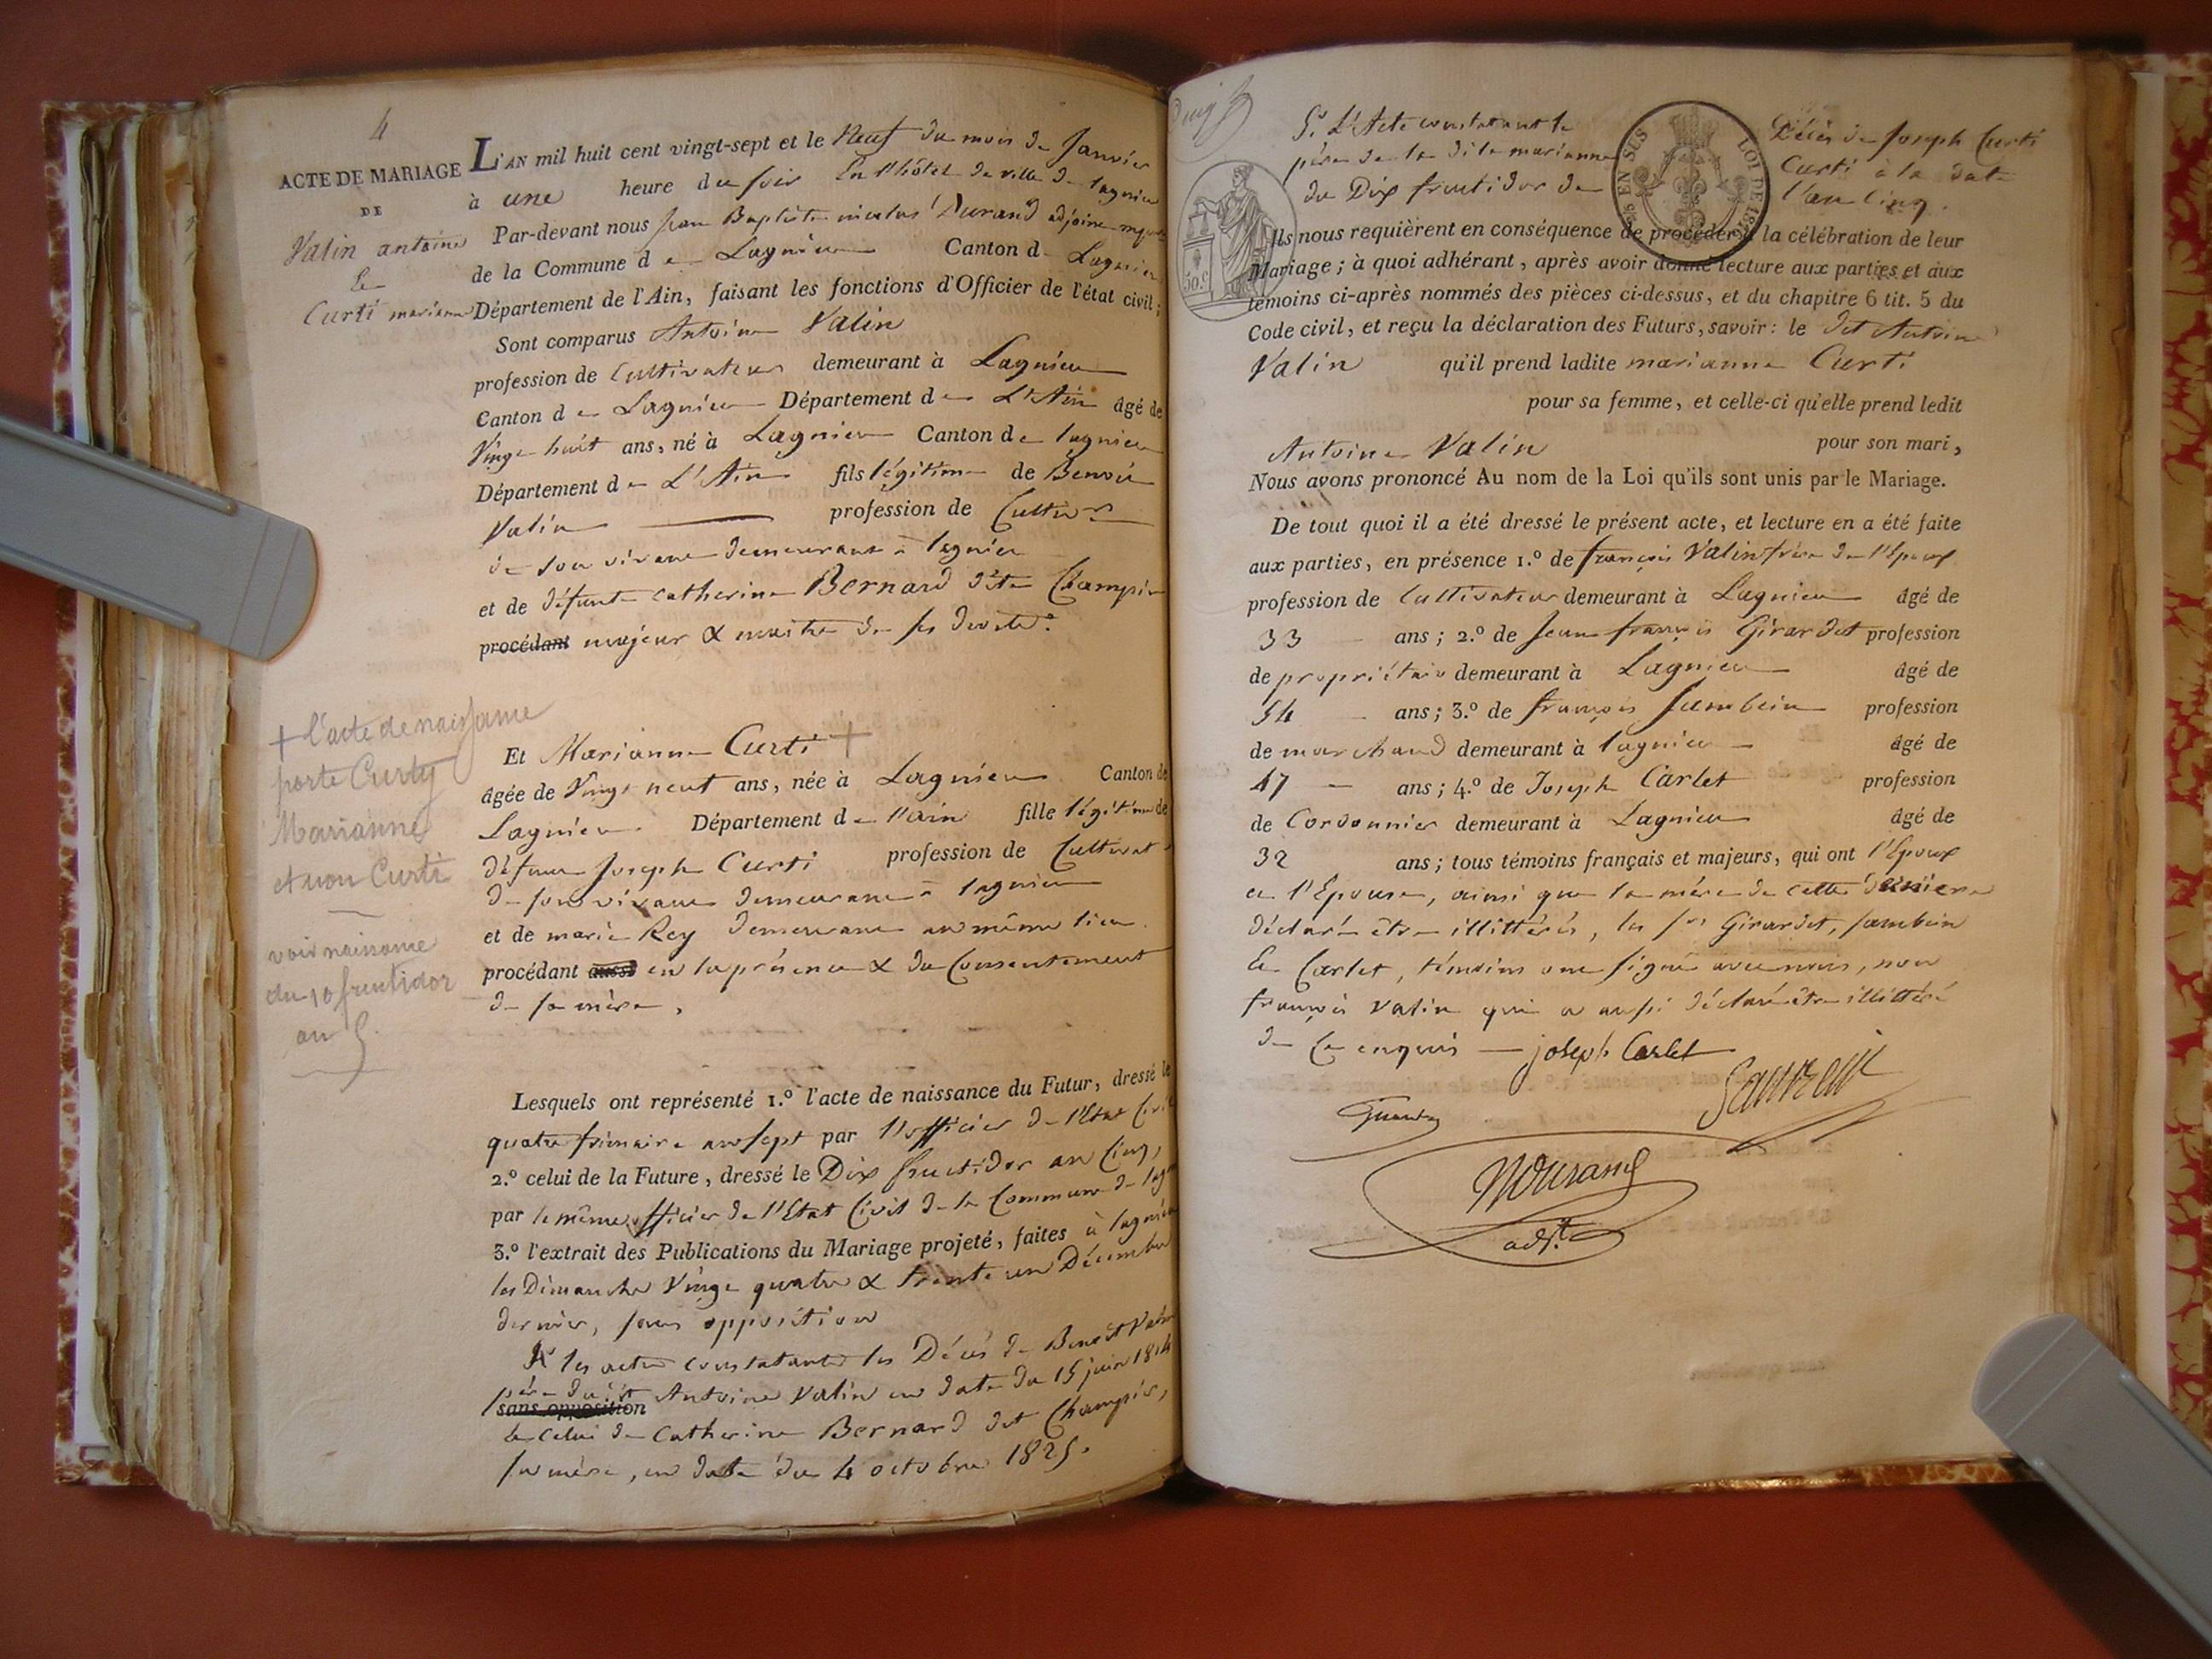 4
ACTE DE MARIAGE
DE
Valin antoine
Et
Curti marianne
L'AN mil huit cent vingt-sept et le Neuf du mois de Janvier
à une heure du soir En l'hôtel de ville de lagnieu
Par-devant nous Jean Baptiste nicolas Durand adjoint
de la Commune de Lagnieu Canton de Lagnieu
Département de l'Ain, faisant les fonctions d'Officier de l'état civil;
Sont comparus Antoine Valin
profession de Cultivateur demeurant à Lagnieu
Canton de Lagnieu Département de L'Ain âgé de
Vingt huit ans, né à Lagnieu Canton de lagnieu
Département de L'Ain fils légitime de Benoit
Valin profession de Cultivr
de son vivant demeurant à lagnieu
et de défunte catherine Bernard dite Champier
procédant majeur & maitre de ses droits.
+ l'acte de naissance
porte Curty
Marianne
et non Curti
voir naissance
du 10 fructidor
an 5.
Et Marianne Curti +
âgée de Vingt neuf ans, née à Lagnieu Canton de
Lagnieu Département de l'ain fille légitime de
défunt Joseph Curti profession de Cultivat
de son vivant demeurant à lagnieu
et de marie Rey demeurant au même lieu
procédant aussi en la présence & du Consentement
de sa mère,
Lesquels ont représenté 1.º l'acte de naissance du Futur, dressé le
quatre frimaire an sept par l'officier de l'Etat Civil
2.º celui de la Future, dressé le Dix fructidor an Cinq,
par le même officier de l'Etat Civil de la Commune de lag
3.º l'extrait des Publications du Mariage projeté, faites à lagnieu
les Dimanches Vingt quatre & trente un Décembre
dernier, sans opposition
4º les actes constatants les Décès de Benoît Valin
père dudit Antoine Valin en date du 15 juin 1814
sans opposition
Et celui de Catherine Bernard dit Champier,
sa mère, en date du 4 octobre 1825.
5º L'Acte constatant le Décès de Joseph Curti
père de la dite marianne Curti à la date
du Dix fructidor de l'an Cinq.
5/5 EN SUS LOI DE 18
50.C
Ils nous requièrent en conséquence de procéder à la célébration de leur
Mariage; à quoi adhérant, après avoir donné lecture aux parties et aux
témoins ci-après nommés des pièces ci-dessus, et du chapitre 6 tit. 5 du
Code civil, et reçu la déclaration des Futurs, savoir: le dit Antoine
Valin qu'il prend ladite marianne Curti
pour sa femme, et celle-ci qu'elle prend ledit
Antoine Valin pour son mari,
Nous avons prononcé Au nom de la Loi qu'ils sont unis par le Mariage.
De tout quoi il a été dressé le présent acte, et lecture en a été faite
aux parties, en présence 1.º de françois Valin frère de l'Epoux
profession de Cultivateur demeurant à Lagnieu âgé de
33 ans; 2.º de Jean françois Girardet profession
de propriétaire demeurant à Lagnieu âgé de
54 ans; 3.º de françois Sambein profession
de marchand demeurant à lagnieu âgé de
47 ans; 4.º de Joseph Carlet profession
de Cordonnier demeurant à Lagnieu âgé de
32 ans; tous témoins français et majeurs, qui ont l'Epoux
et l'Epouse, ainsi que la mère de cette dernière
déclaré être illittérés, les srs Girardet, Sambein
Et Carlet, témoins ont signé avec nous, non
françois Valin qui a aussi déclaré être illittéré
de Ce enquis — joseph Carlet
NDurand
adjt